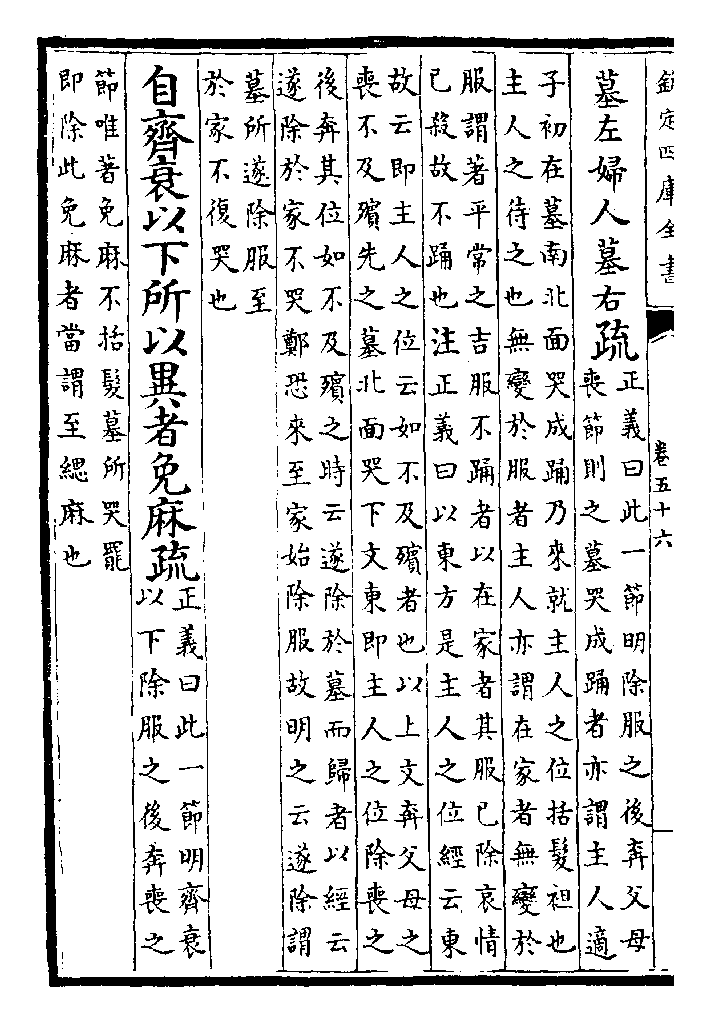 欽定四庫全書
卷五十六
墓左婦人墓右疏
正義曰此一節明除服之後奔父母
喪節則之墓哭成踊者亦謂主人適
子初在墓南北面哭成踊乃來就主人之位括髮袒也
主人之待之也無變於服者主人亦謂在家者無變於
服謂著平常之吉服不踊者以在家者其服已除哀情
已殺故不踊也注正義曰以東方是主人之位經云東
故云即主人之位云如不及殯者也以上文奔父母之
喪不及殯先之墓北面哭下文東即主人之位除喪之
後奔其位如不及殯之時云遂除於墓而歸者以經云
遂除於家不哭鄭恐來至家始除服故明之云遂除謂
墓所遂除服至
於家不復哭也
自齊衰以下所以異者免麻疏
正義曰此一節明齊衰
以下除服之後奔喪之
節唯著免麻不括髮墓所哭罷
即除此免麻者當謂至緦麻也